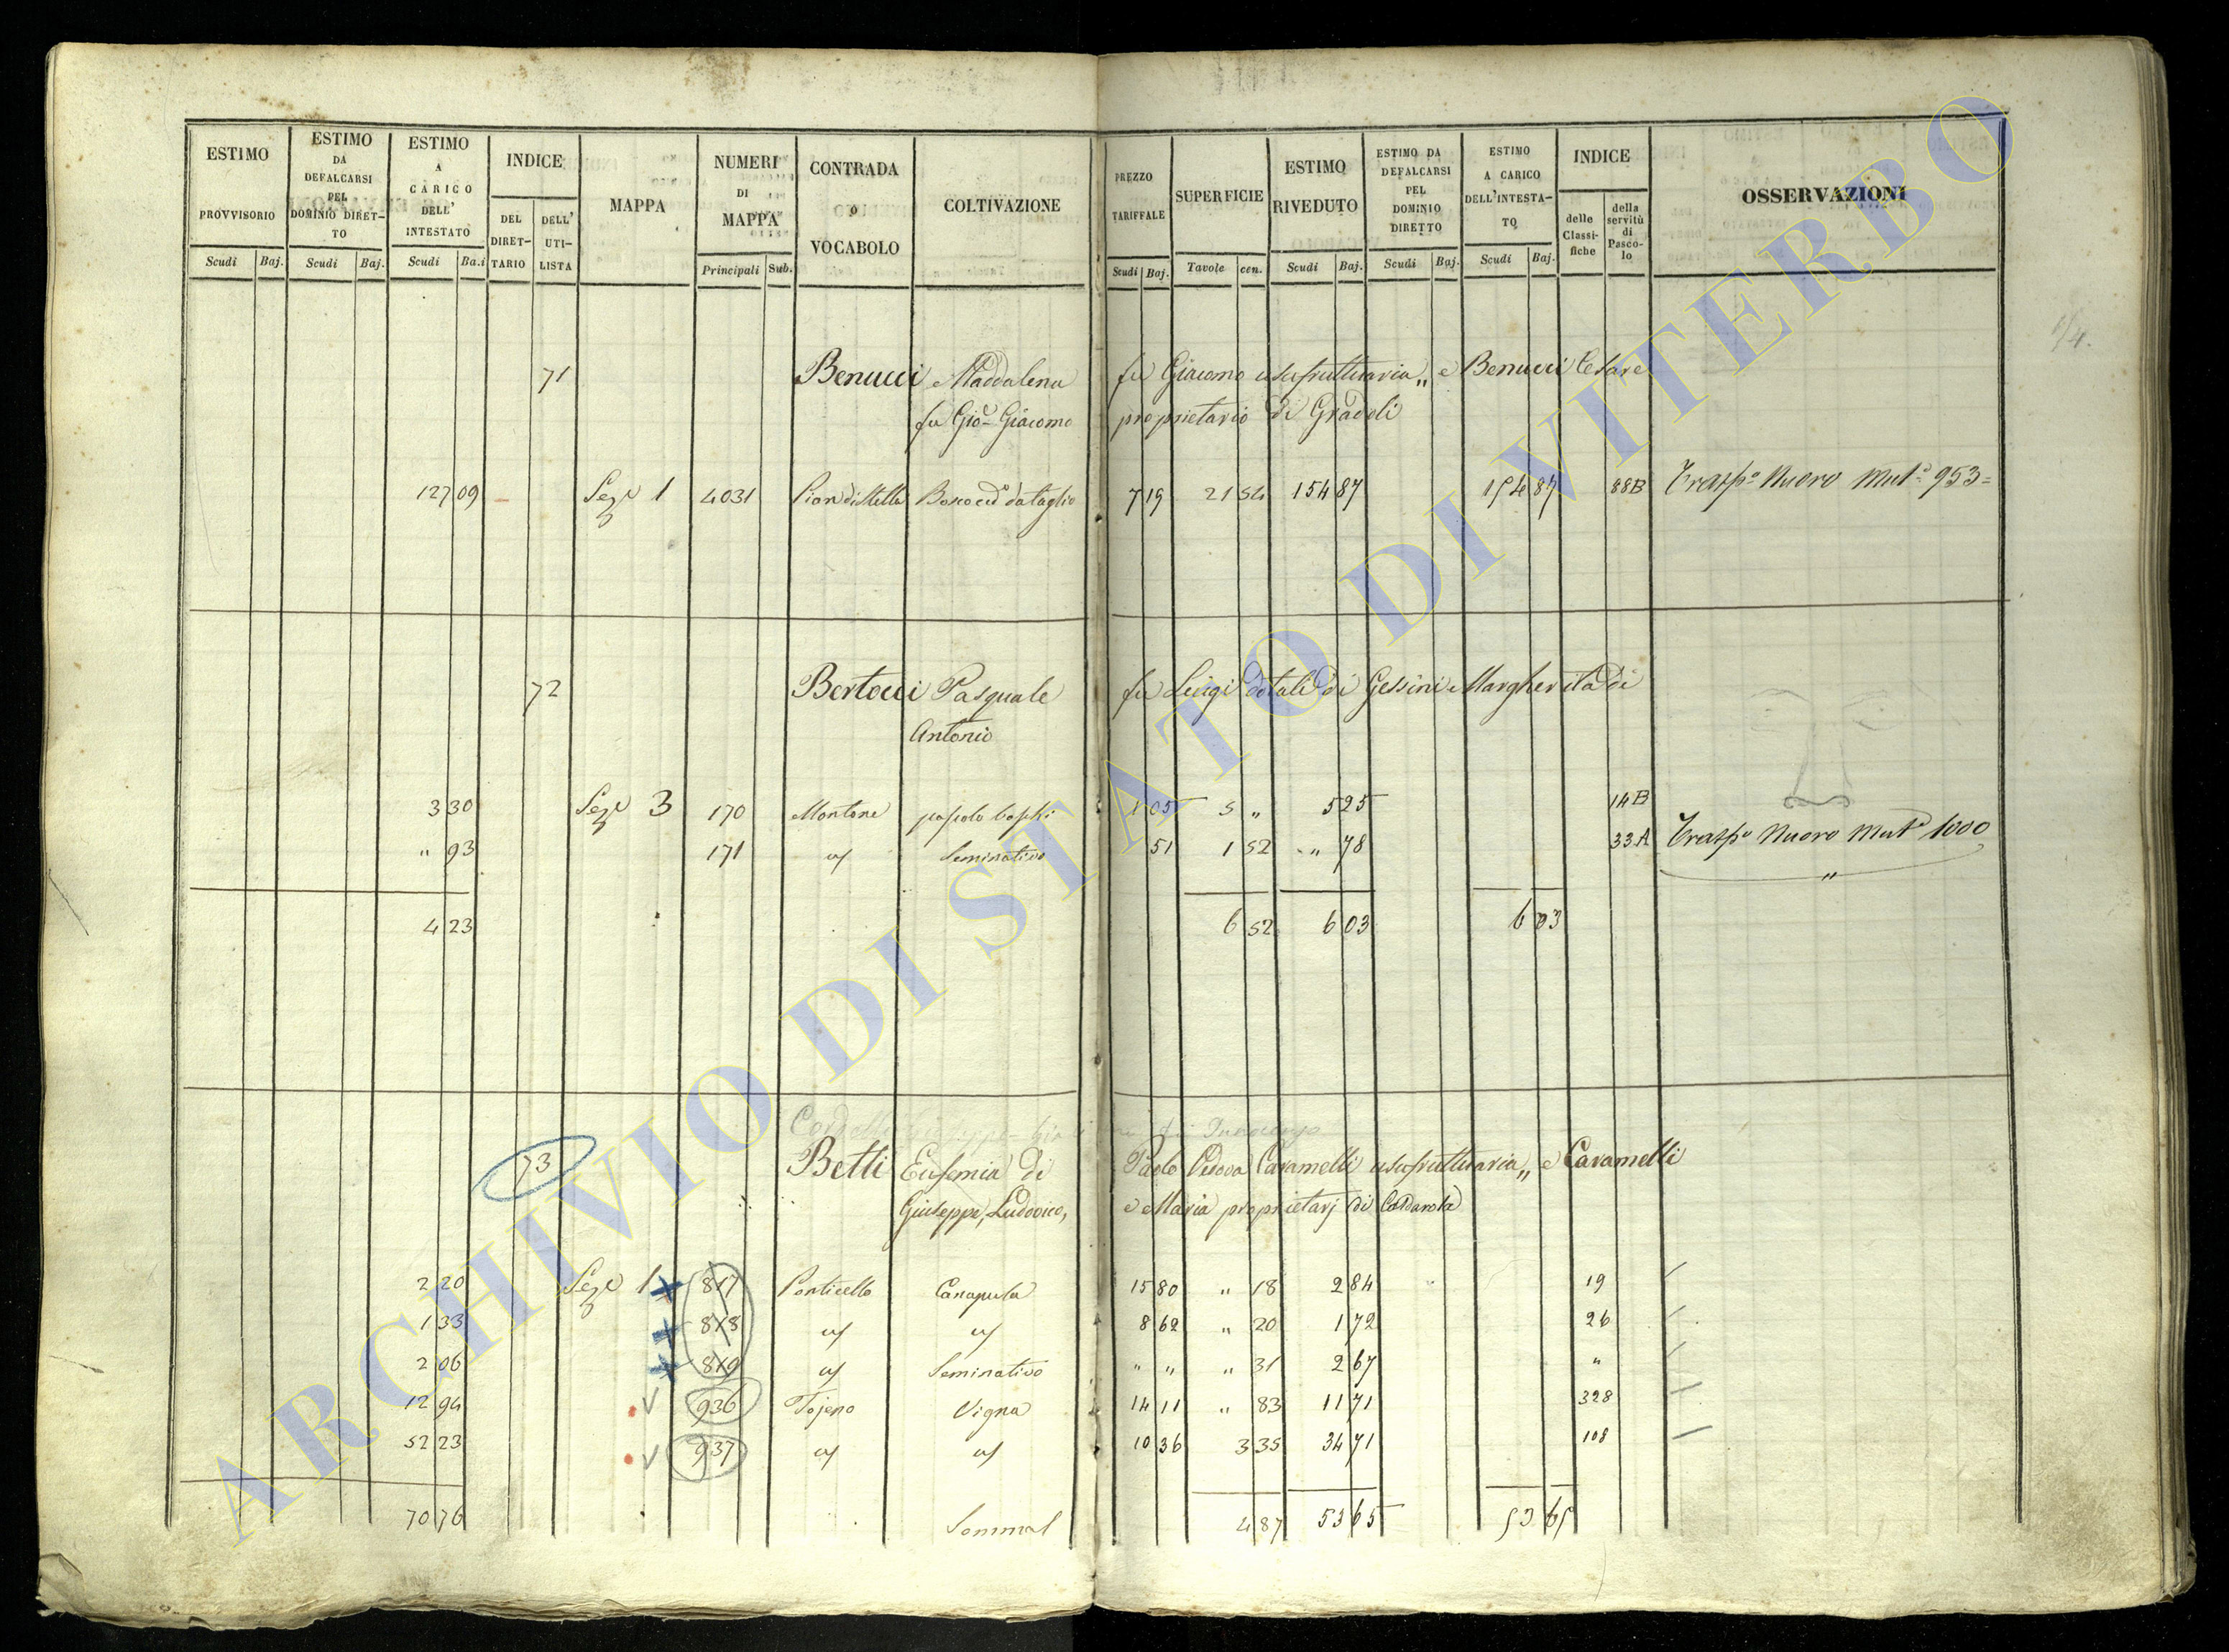 ESTIMO PROVVISORIO Scudi Baj.
ESTIMO DA DEFALCARSI PEL DOMINIO DIRET-TO Scudi Baj.
ESTIMO A CARICO DELL' INTESTATO Scudi Ba.i
INDICE DEL DIRET-TARIO DELL' UTI-LISTA
MAPPA
NUMERI DI MAPPA Principali Sub.
CONTRADA o VOCABOLO
COLTIVAZIONE
PREZZO TARIFFALE Scudi Baj.
SUPERFICIE Tavole cen.
ESTIMO RIVEDUTO Scudi Baj.
ESTIMO DA DEFALCARSI PEL DOMINIO DIRETTO Scudi Baj.
ESTIMO A CARICO DELL'INTESTA-TO Scudi Baj.
INDICE delle Classi-fiche della servitù di Pasco-lo
OSSERVAZIONI
71 Benucci Maddalena fu Giacomo usufruttuaria,, e Benucci Cesare
fu Gio. Giacomo proprietario di Gradoli
127 09 Seze 1 4031 Pian di Stella Bosco ced° da taglio 7 19 21 54 154 87 154 87 88B Trasp° Nuovo Mut° 953=
72 Bertocci Pasquale fu Luigi dotale di Gessini Margherita di
Antonio
3 30 Seze 3 170 Montone 1 05 5 „ 5 25 14B
„ 93 171 Seminativo 51 1 52 „ 78 33A Trasp° Nuovo Mut° 1000
4 23 6 52 6 03 6 03
73 Betti Eufemia di Paolo Vedova Caramelli usufruttuaria,, e Caramelli
Giuseppe, Ludovico, e Maria proprietarj di
2 20 Seze 1 817 Ponticello Canapula 15 80 „ 18 2 84 19
1 33 818 8 62 „ 20 1 72 26
2 06 819 Seminativo „ „ „ 31 2 67 „
12 94 936 Tojeno Vigna 14 11 „ 83 11 71 328
52 23 937 10 36 3 35 34 71 108
70 76 4 87 53 65 53 65
ARCHIVIO DI STATO DI VITERBO